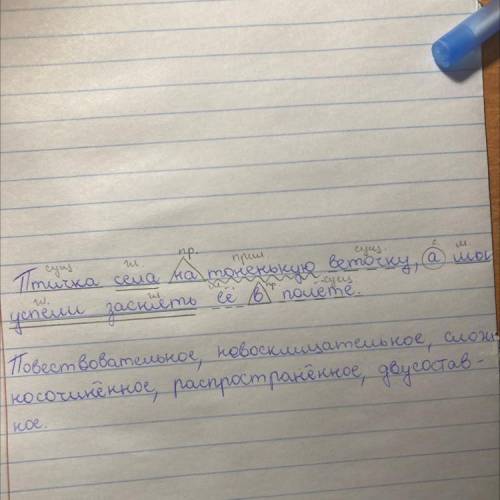 сущ. гл. пр. прил. сущ. с. м.
Птичка села на тоненькую веточку, а мы
гл. гл. пр. сущ.
успели заснять её в полёте.
Повествовательное, невосклицательное, слож-
носочинённое, распространённое, двусостав-
ное.